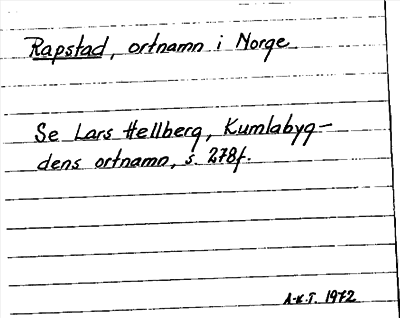 Rapstad, ortnamn i Norge
Se Lars Hellberg, Kumlabyg-
dens ortnamn, s. 278f.
A-K.T. 1972